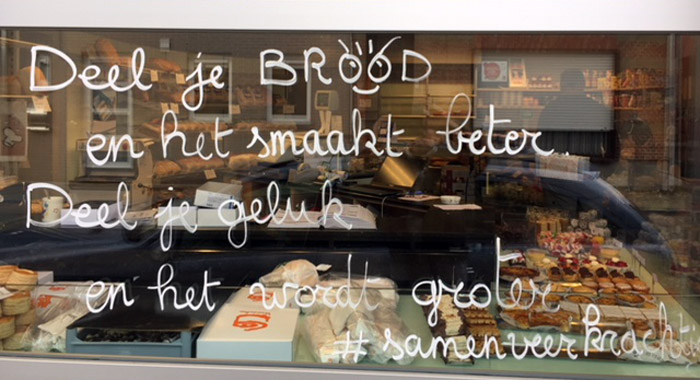 Deel je BROOD
en het smaakt beter...
Deel je geluk
en het wordt groter
#samenveerkracht